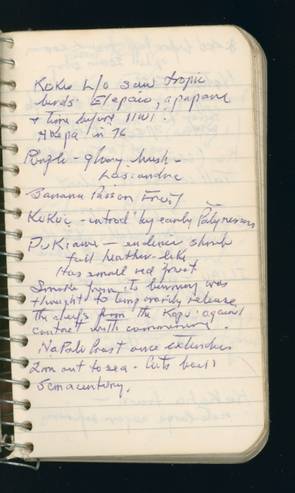 Koke L/O saw tropic
birds. Elepaio, apapane
+ time before 11 W1.
Akepa in 76
Purple - glory bush -
Lasiandra
Banana Passion Fruit
Kukui - introd' by early Polynesians
Pukiawe - endemic shrub
tall heather-like
Has small red fruit
Smoke from its burning was
thought to temporarily release
the chiefs from the Kapu against
contact with commoners.
Na Pali Coast once extended
2 m out to sea - cuts back 1
5cm a century.